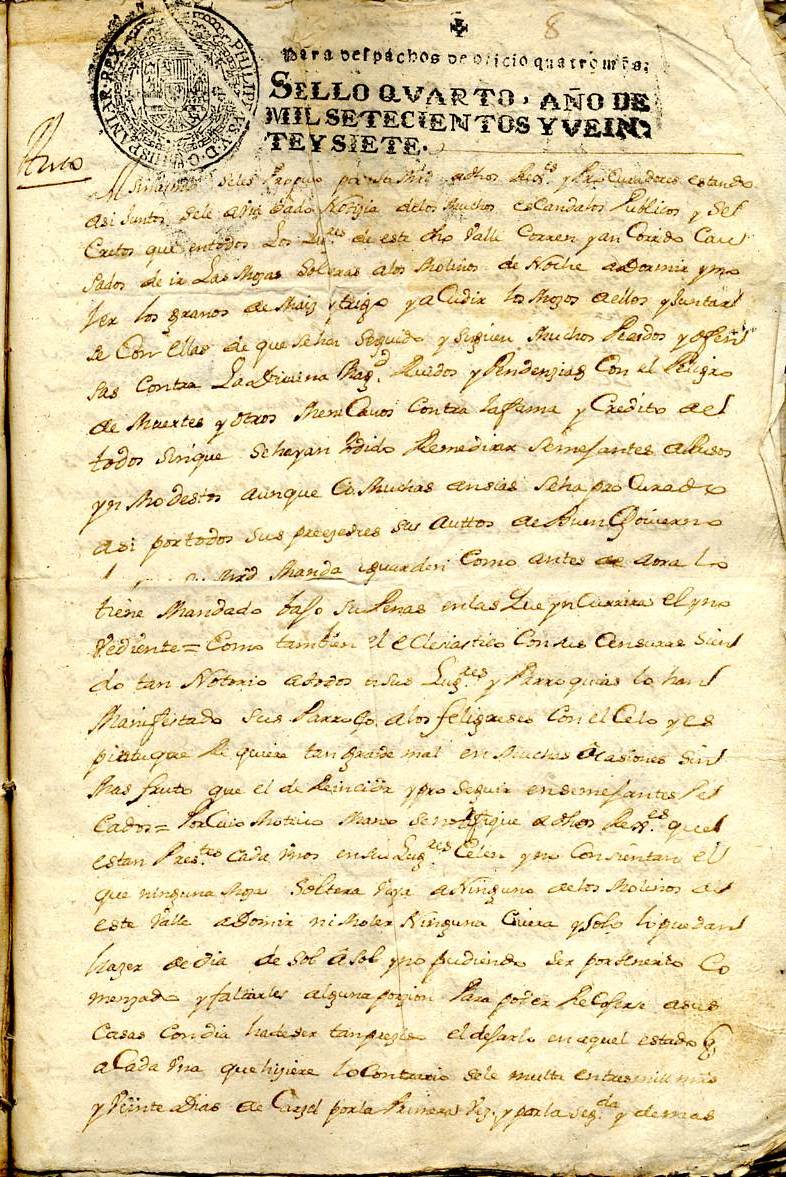 8
PHILIPPVS V D G HISPANIAR REX
Para despachos de oficio quatro mrs.
SELLO QVARTO, AÑO DE
MIL SETECIENTOS Y VEIN
TE Y SIETE.
Auto
seles Propuso por su Mrd adhos Rexres y Procuradores estando
asi Juntos sele a dado Notizia delos Muchos escandalos Publicos y Se
Cretos que entodos Los Lugres de este dho Valle Corren yan Corrido Cau
sados de ir Las Mozas Solteras alos Molinos de Noche aDormir ymo
ler los granos de Maiz ytrigo y aCudir los Mozos aellos yJuntar
se Con ellas de que sehan Seguido y siguen Muchos Pecados y ofen
sas Contra La Divina Magd. Ruidos y Pendenzias Con el Peligro
de Muertes y otros MenosCavos Contra lafama y Credito del
todos sinque sehayan Podido Remediar semejantes abusos
ynModestos aunque Co Muchas ansias seha proCurado
asi portodos sus prezesores sus auttos deBuen Govierno
Mrd Manda seguarden Como antes de aora lo
tiene Mandado bajo su Penas enlas Que ynCurrira elyno
vediente= Como tambien el eClesiastico Consus Censuras Sien
do tan Notorio atodos en sus Lugres y Parroquias lo han
Manifestado sus Parrocos alos feligreses Con el Celo y es
piritu que Requiere tangrade mal en Muchas ocasiones Sin
Mas fruto que el de Reincidir ypro Seguir ensemejantes Pe
Cados= PorCuio Motivo Mando senotifique adhos Rexres quel
estan Prestes Cada Unos en su Lugres Celen yno Consientan el
que ninguna Moza Soltera vaya aNinguno delos Molinos de
este Valle aDormir niMoler Ninguna Civera ysolo lopuedan
hazer de dia de Sol aSol yno pudiendo ser por tenerlo Co
menzado y faltarles alguna porzion Para poder ReCojerse asus
Casas Condia hadeser tanprezis eldejarlo enaquel estado
aCada Una quehiziere loContrario sele multa entresmill mrs
yVeinte aDias de Carzel porla Primera Vez, yporla segda y demas